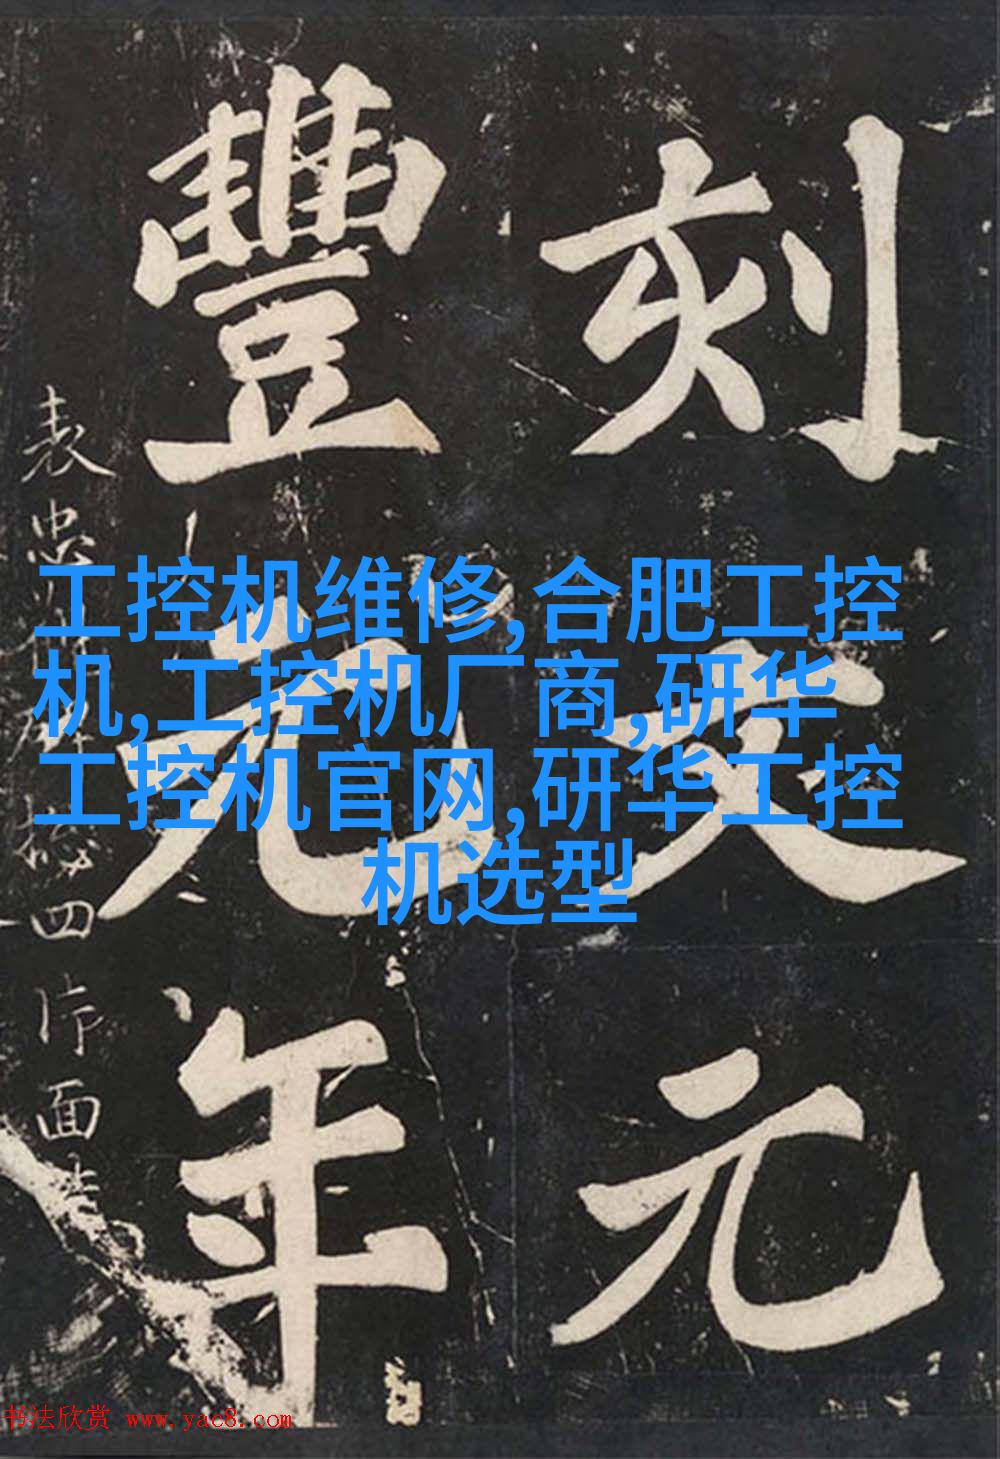 刻文元
豐元年
表忠四片面
工控机维修,合肥工控
机,工控机厂商,研华
工控机官网,研华工控
机选型
书法欣赏 www.yac8.com